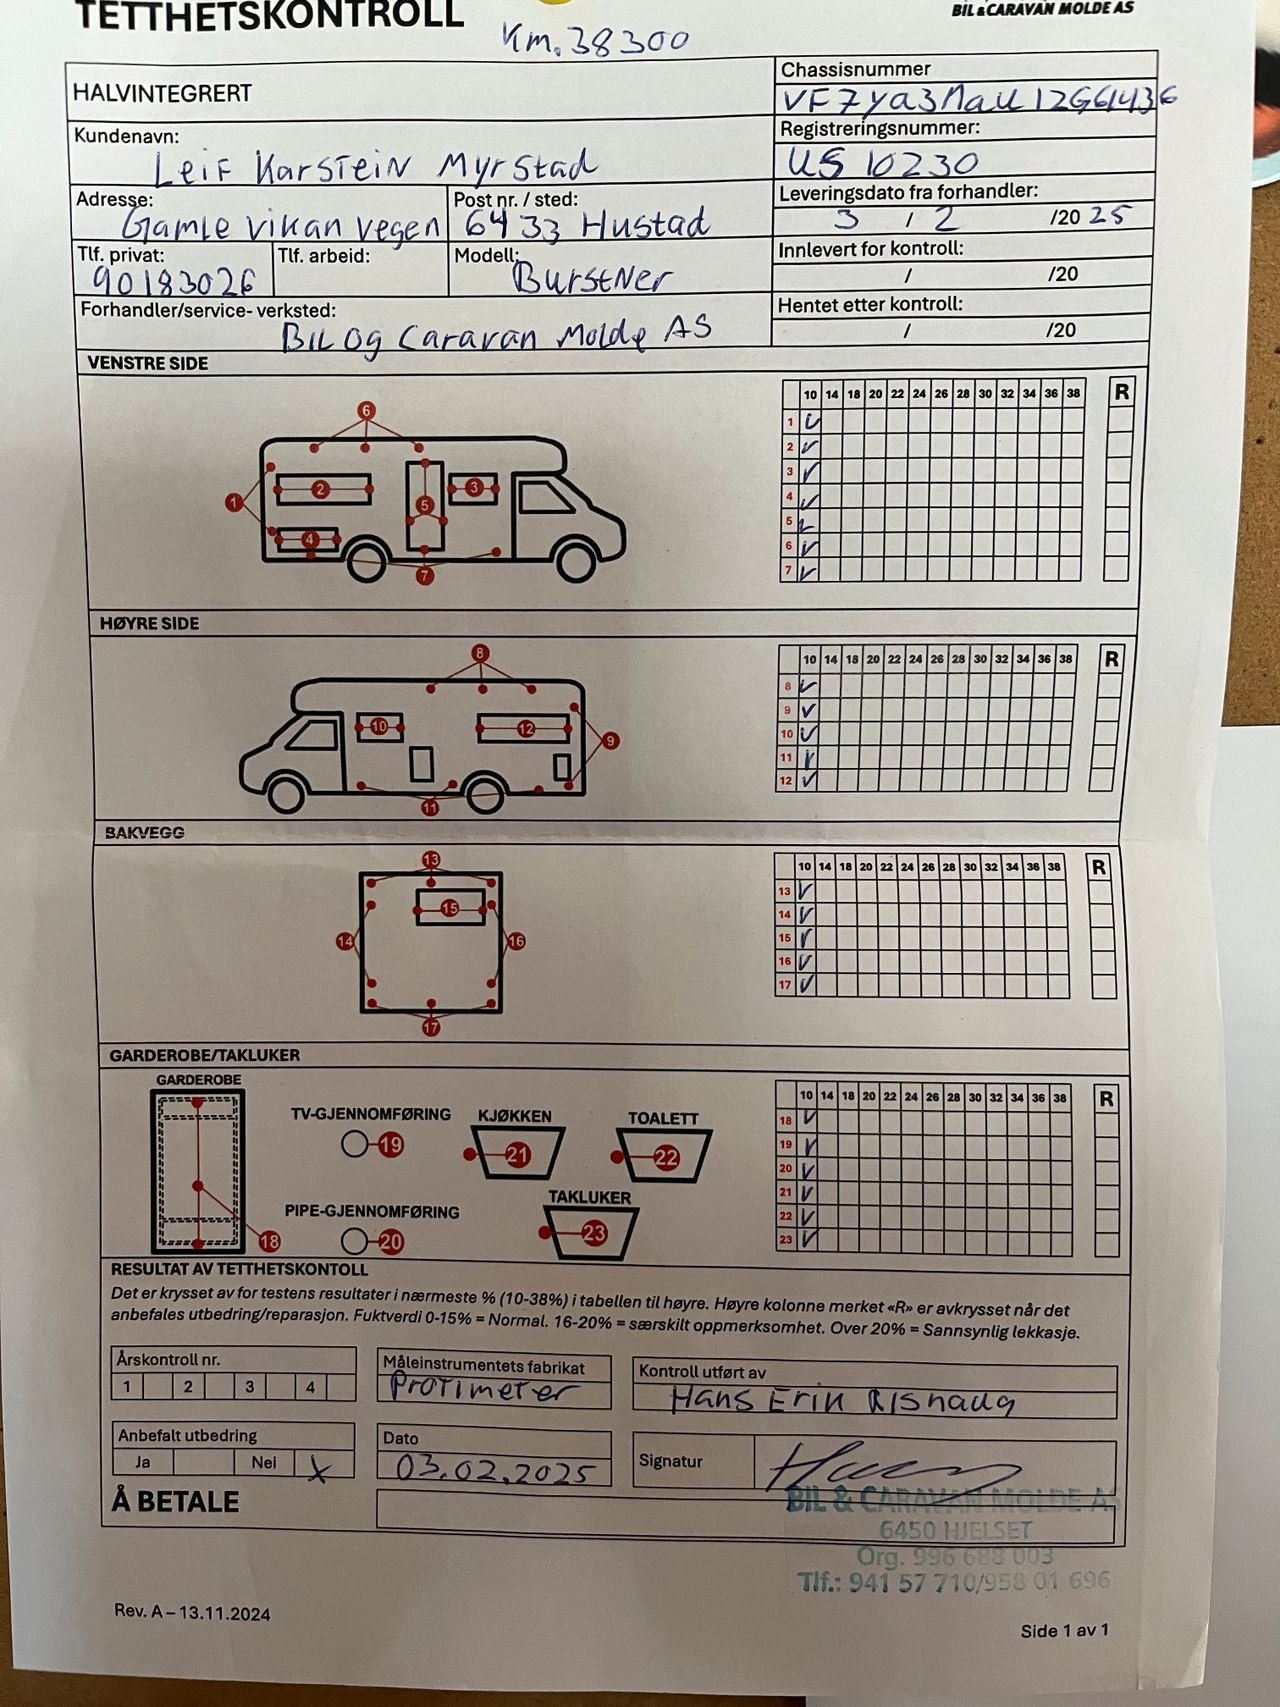 TETTHETSKONTROLL
BIL & CARAVAN MOLDE AS
Km. 38300
HALVINTEGRERT
Chassisnummer
Kundenavn:
Leif Karstein Myrstad
Registreringsnummer:
US 10230
Adresse:
Gamle vikan vegen
Post nr. / sted:
6433 Hustad
Leveringsdato fra forhandler:
3 / 2 /20 25
Tlf. privat:
90183026
Tlf. arbeid:
Modell:
Burstner
Innlevert for kontroll:
/ /20
Forhandler/service- verksted:
Bil og Caravan Molde AS
Hentet etter kontroll:
/ /20
VENSTRE SIDE
6
1
2
3
4
5
7
10 14 18 20 22 24 26 28 30 32 34 36 38 R
1 ✓
2 ✓
3 ✓
4 ✓
5 ✓
6 ✓
7 ✓
HØYRE SIDE
8
10
12
9
11
10 14 18 20 22 24 26 28 30 32 34 36 38 R
8 ✓
9 ✓
10 ✓
11 ✓
12 ✓
BAKVEGG
13
15
14
16
17
10 14 18 20 22 24 26 28 30 32 34 36 38 R
13 ✓
14 ✓
15 ✓
16 ✓
17 ✓
GARDEROBE/TAKLUKER
GARDEROBE
18
TV-GJENNOMFØRING
19
KJØKKEN
21
TOALETT
22
PIPE-GJENNOMFØRING
20
TAKLUKER
23
10 14 18 20 22 24 26 28 30 32 34 36 38 R
18 ✓
19 ✓
20 ✓
21 ✓
22 ✓
23 ✓
RESULTAT AV TETTHETSKONTOLL
Det er krysset av for testens resultater i nærmeste % (10-38%) i tabellen til høyre. Høyre kolonne merket «R» er avkrysset når det
anbefales utbedring/reparasjon. Fuktverdi 0-15% = Normal. 16-20% = særskilt oppmerksomhet. Over 20% = Sannsynlig lekkasje.
Årskontroll nr.
1 2 3 4
Måleinstrumentets fabrikat
Protimeter
Kontroll utført av
Hans Erik Risnaug
Anbefalt utbedring
Ja Nei X
Dato
03.02.2025
Signatur
Å BETALE
BIL & CARAVAN MOLDE AS
6450 HJELSET
Org. 996 688 003
Tlf.: 941 57 710/958 01 696
Rev. A – 13.11.2024
Side 1 av 1